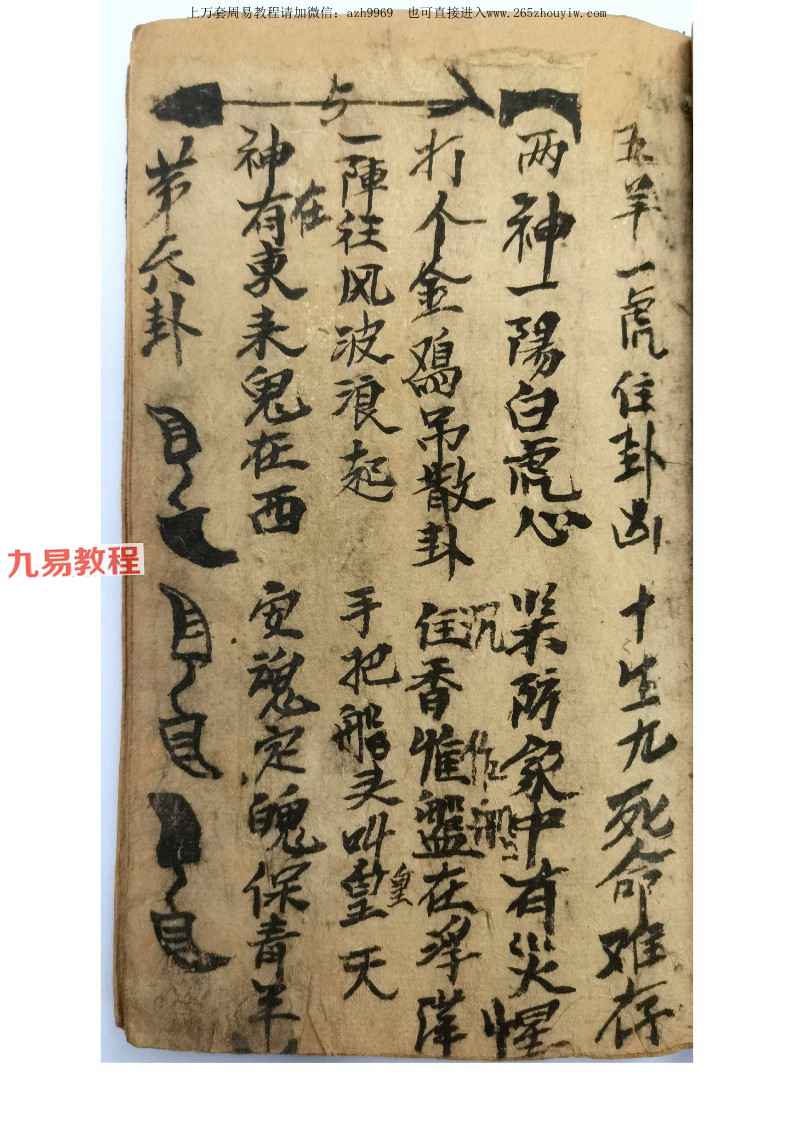 上万套周易教程请加微信：azh9969 也可直接进入www.265zhouyiw.com
五羊一虎住卦凶 十生九死命难存
两神一陽白虎心 紧防家中有火惺
打个金鳮吊散卦 住香惟盤在浮洋
沉 作船
与
一陣往风波浪起 手把船头叫皇天
皇
神有東来鬼在西 安魂定魄保青羊
在
苐六卦
九易教程